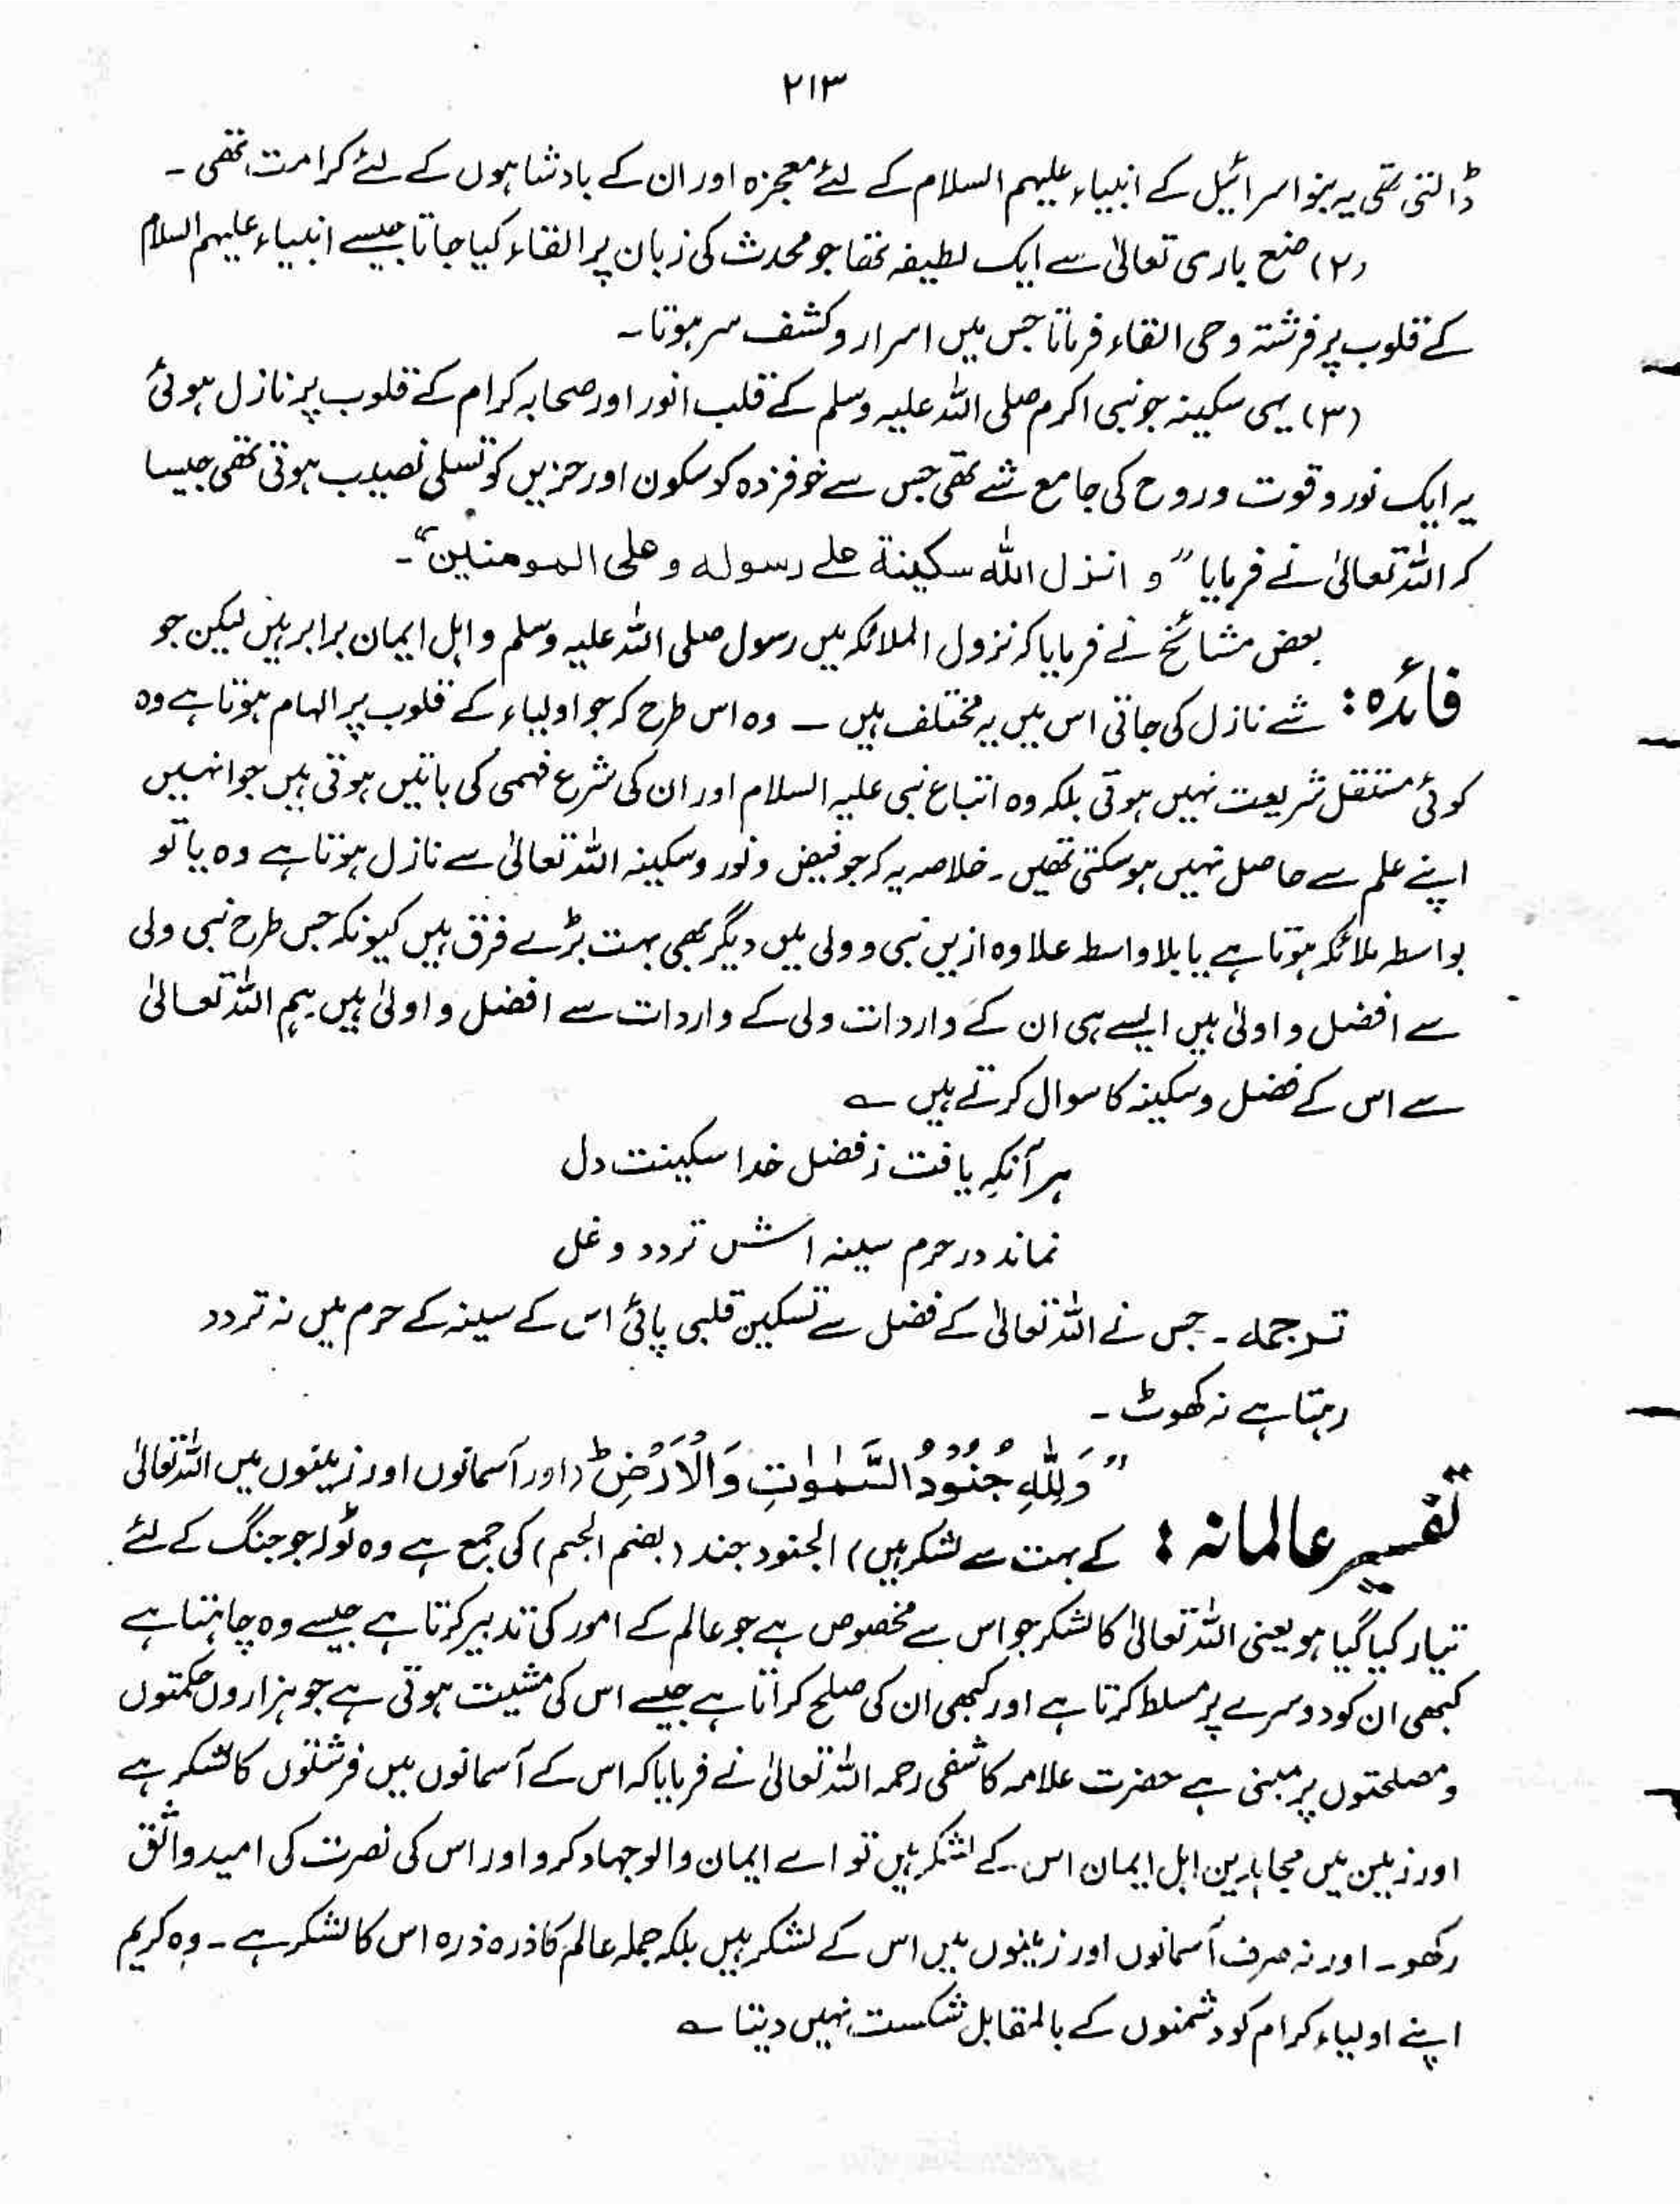 ۲۱۳
ڈالتی تھی یہ بنو اسرائیل کے انبیاء علیہم السلام کے لئے معجزہ اور ان کے بادشاہوں کے لئے کرامت تھی ۔
(۲) صنع باری تعالیٰ سے ایک لطیفہ تھا جو محدث کی زبان پر القاء کیا جاتا جیسے انبیاء علیہم السلام
کے قلوب پر فرشتہ وحی القاء فرماتا جس میں اسرار و کشف سر ہوتا ۔
(۳) یہی سکینہ جو نبی اکرم صلی اللہ علیہ وسلم کے قلب انور اور صحابہ کرام کے قلوب پر نازل ہوئی
یہ ایک نور و قوت و روح کی جامع شے تھی جس سے خوفزدہ کو سکون اور حزیں کو تسلی نصیب ہوتی تھی جیسا
کہ اللہ تعالیٰ نے فرمایا ”و انزل اللہ سکینة علے رسولہ و علی المومنین“ ۔
بعض مشائخ نے فرمایا کہ نزول الملائکہ میں رسول صلی اللہ علیہ وسلم و اہل ایمان برابر ہیں لیکن جو
فائدہ : شے نازل کی جاتی اس میں یہ مختلف ہیں ۔ وہ اس طرح کہ جو اولیاء کے قلوب پر الہام ہوتا ہے وہ
کوئی مستقل شریعت نہیں ہوتی بلکہ وہ اتباع نبی علیہ السلام اور ان کی شرع فہمی کی باتیں ہوتی ہیں جو انہیں
اپنے علم سے حاصل نہیں ہو سکتی تھیں ۔ خلاصہ یہ کہ جو فیض و نور و سکینہ اللہ تعالیٰ سے نازل ہوتا ہے وہ یا تو
بواسطہ ملائکہ ہوتا ہے یا بلا واسطہ علاوہ ازیں نبی و ولی میں دیگر بھی بہت بڑے فرق ہیں کیونکہ جس طرح نبی ولی
سے افضل و اولیٰ ہیں ایسے ہی ان کے واردات ولی کے واردات سے افضل و اولیٰ ہیں ہم اللہ تعالیٰ
سے اس کے فضل و سکینہ کا سوال کرتے ہیں ؎
ہر آنکہ یافت ز فضل خدا سکینت دل
نماند در حرم سینہ اش تردد و غل
ترجمہ ۔ جس نے اللہ تعالیٰ کے فضل سے تسکین قلبی پائی اس کے سینہ کے حرم میں نہ تردد
رہتا ہے نہ کھوٹ ۔
”وَلِلّٰہِ جُنُوْدُ السَّمٰوٰتِ وَالْاَرْضِ ؕ (اور آسمانوں اور زمینوں میں اللہ تعالیٰ
تفسیر عالمانہ : کے بہت سے لشکر ہیں) الجنود جند (بضم الجیم) کی جمع ہے وہ ٹولہ جو جنگ کے لئے
تیار کیا گیا ہو یعنی اللہ تعالیٰ کا لشکر جو اس سے مخصوص ہے جو عالم کے امور کی تدبیر کرتا ہے جیسے وہ چاہتا ہے
کبھی ان کو دوسرے پر مسلط کرتا ہے اور کبھی ان کی صلح کراتا ہے جیسے اس کی مشیت ہوتی ہے جو ہزاروں حکمتوں
و مصلحتوں پر مبنی ہے حضرت علامہ کاشفی رحمہ اللہ تعالیٰ نے فرمایا کہ اس کے آسمانوں میں فرشتوں کا لشکر ہے
اور زمین میں مجاہدین اہل ایمان اس کے لشکر ہیں تو اے ایمان والو جہاد کرو اور اس کی نصرت کی امید واثق
رکھو ۔ اور نہ صرف آسمانوں اور زمینوں میں اس کے لشکر ہیں بلکہ جملہ عالم کا ذرہ ذرہ اس کا لشکر ہے ۔ وہ کریم
اپنے اولیاء کرام کو دشمنوں کے بالمقابل شکست نہیں دیتا ؎